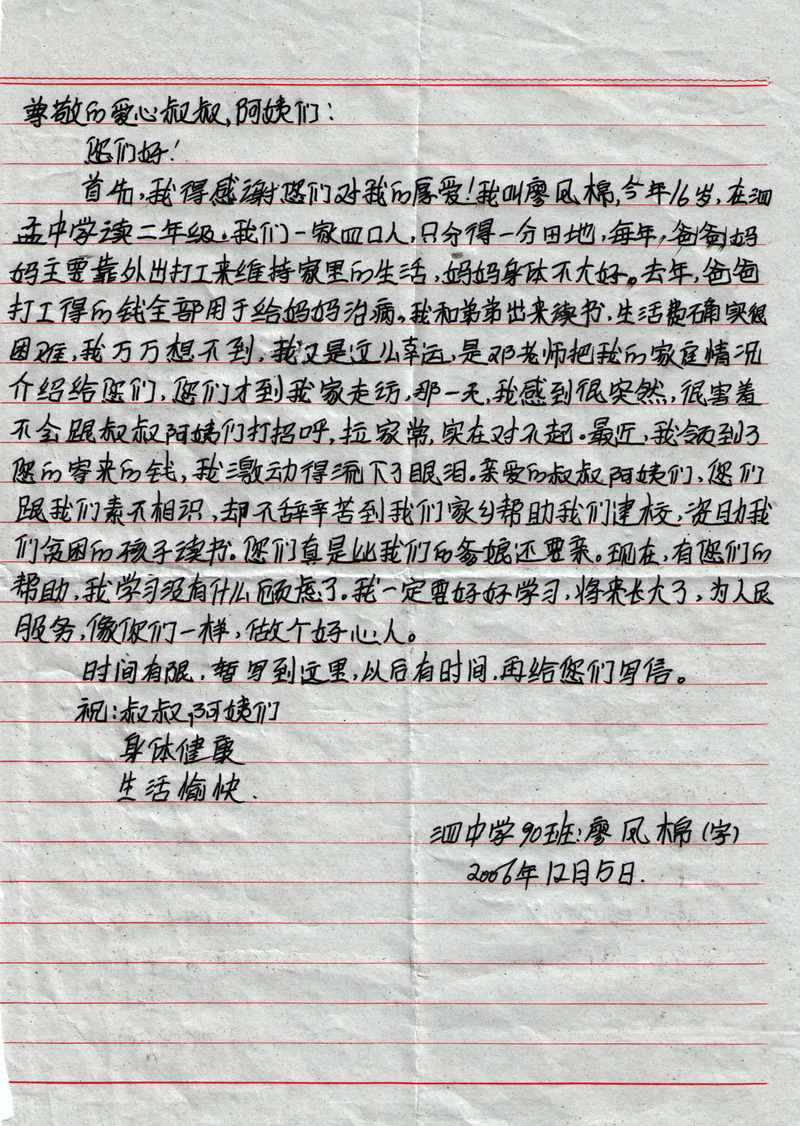 尊敬的爱心叔叔,阿姨们:
您们好!
首先,我得感谢您们对我的厚爱!我叫廖凤棉,今年16岁,在泗
孟中学读二年级。我们一家四口人,只分得一分田地,每年,爸爸妈
妈主要靠外出打工来维持家里的生活,妈妈身体不大好。去年,爸爸
打工得的钱全部用于给妈妈治病。我和弟弟出来读书,生活费确实很
困难,我万万想不到,我又是这么幸运,是邓老师把我的家庭情况
介绍给您们,您们才到我家走访,那一天,我感到很突然,很害羞
不会跟叔叔阿姨们打招呼,拉家常,实在对不起。最近,我领到了
您的寄来的钱,我激动得流下了眼泪。亲爱的叔叔阿姨们,您们
跟我们素不相识,却不辞辛苦到我们家乡帮助我们建校,资助我
们贫困的孩子读书。您们真是比我们的爹娘还要亲。现在,有您们的
帮助,我学习没有什么顾虑了。我一定要好好学习,将来长大了,为人民
服务,像你们一样,做个好心人。
时间有限,暂写到这里,以后有时间,再给您们写信。
祝:叔叔,阿姨们
身体健康
生活愉快.
泗中学90班:廖凤棉(字)
2006年12月5日.